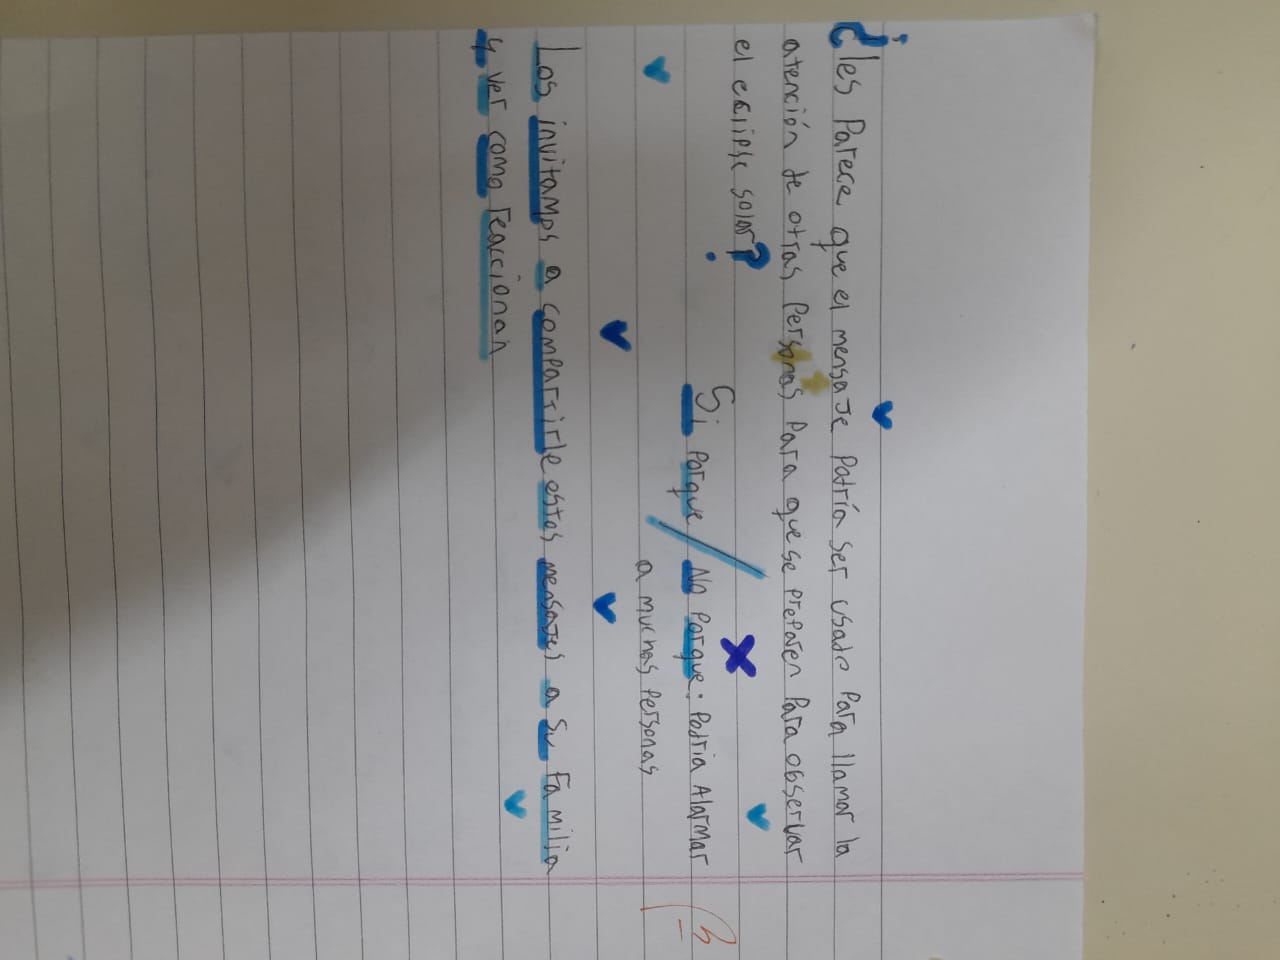 ¿les Parece que el mensaje Podría ser usado Para llamar la
atención de otras Personas Para que se preparen Para observar
el eclipse solar?
Si Porque / No Porque: Podria Alarmar
a muchas Personas
Los invitamos a compartirle estos mensajes a su Familia
y ver como reaccionan